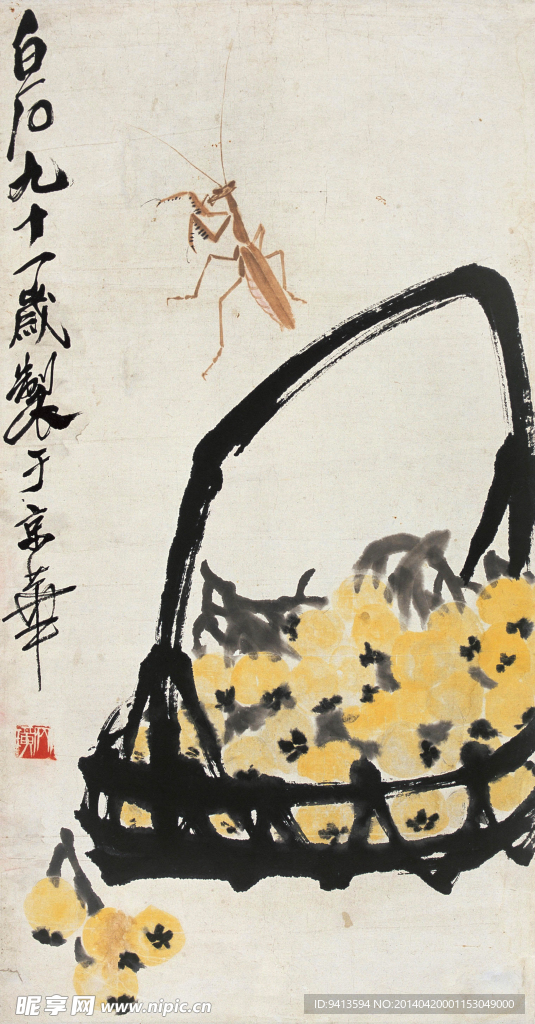 白石九十一歲製于京華
昵享网 www.nipic.cn
ID:9413594 NO:20140420001153049000